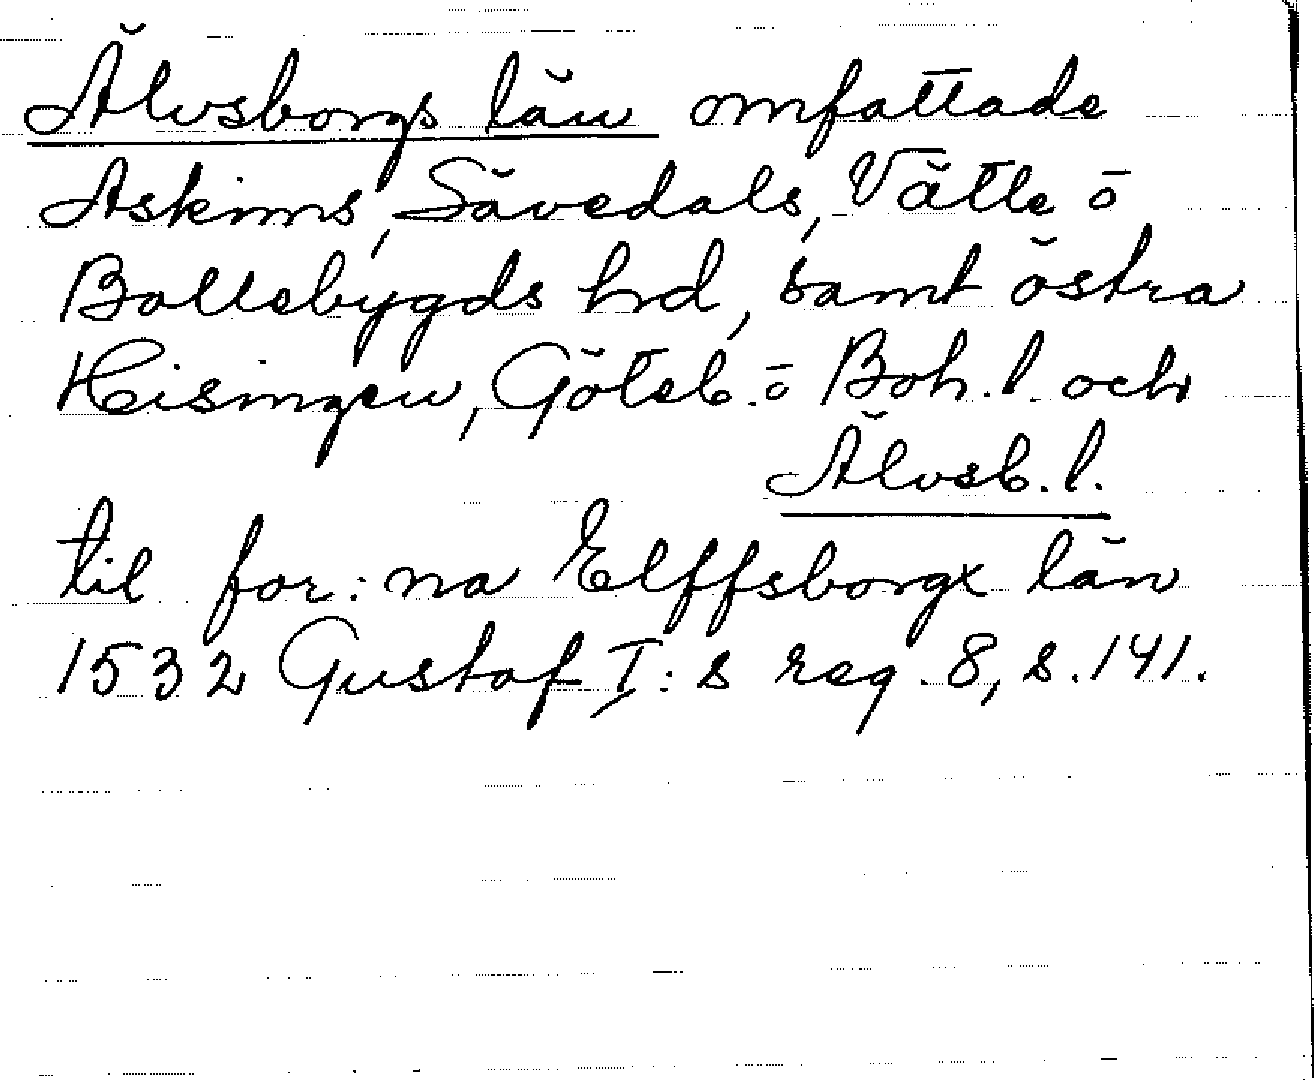 Älvsborgs län omfattade
Askims, Sävedals, Vättle o
Bollebygds hrd, samt östra
Hisingen, Göteb. o Boh. l. och
Älvsb. l.
til for: na Elffsborgx län
1532 Gustaf I: s reg. 8, s. 141.